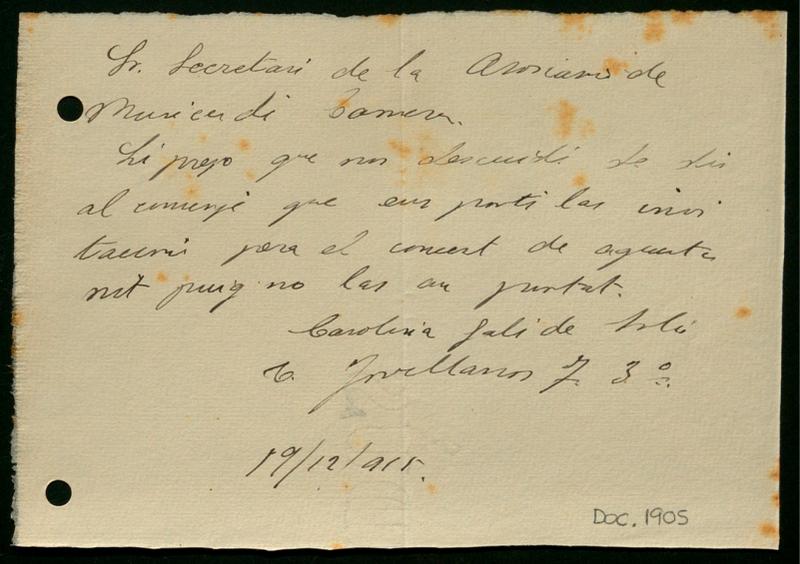 Sr. Secretari de la Asociació de
Musica di Camera.
Li prego que nos descuidi de dir
al conserje que ens porti las invi
tacions pera el concert de aquesta
nit puig no las an portat.
Carolina Gali de Solá
C. Jovellanos 7. 3º.
19/12/915.
Doc. 1905